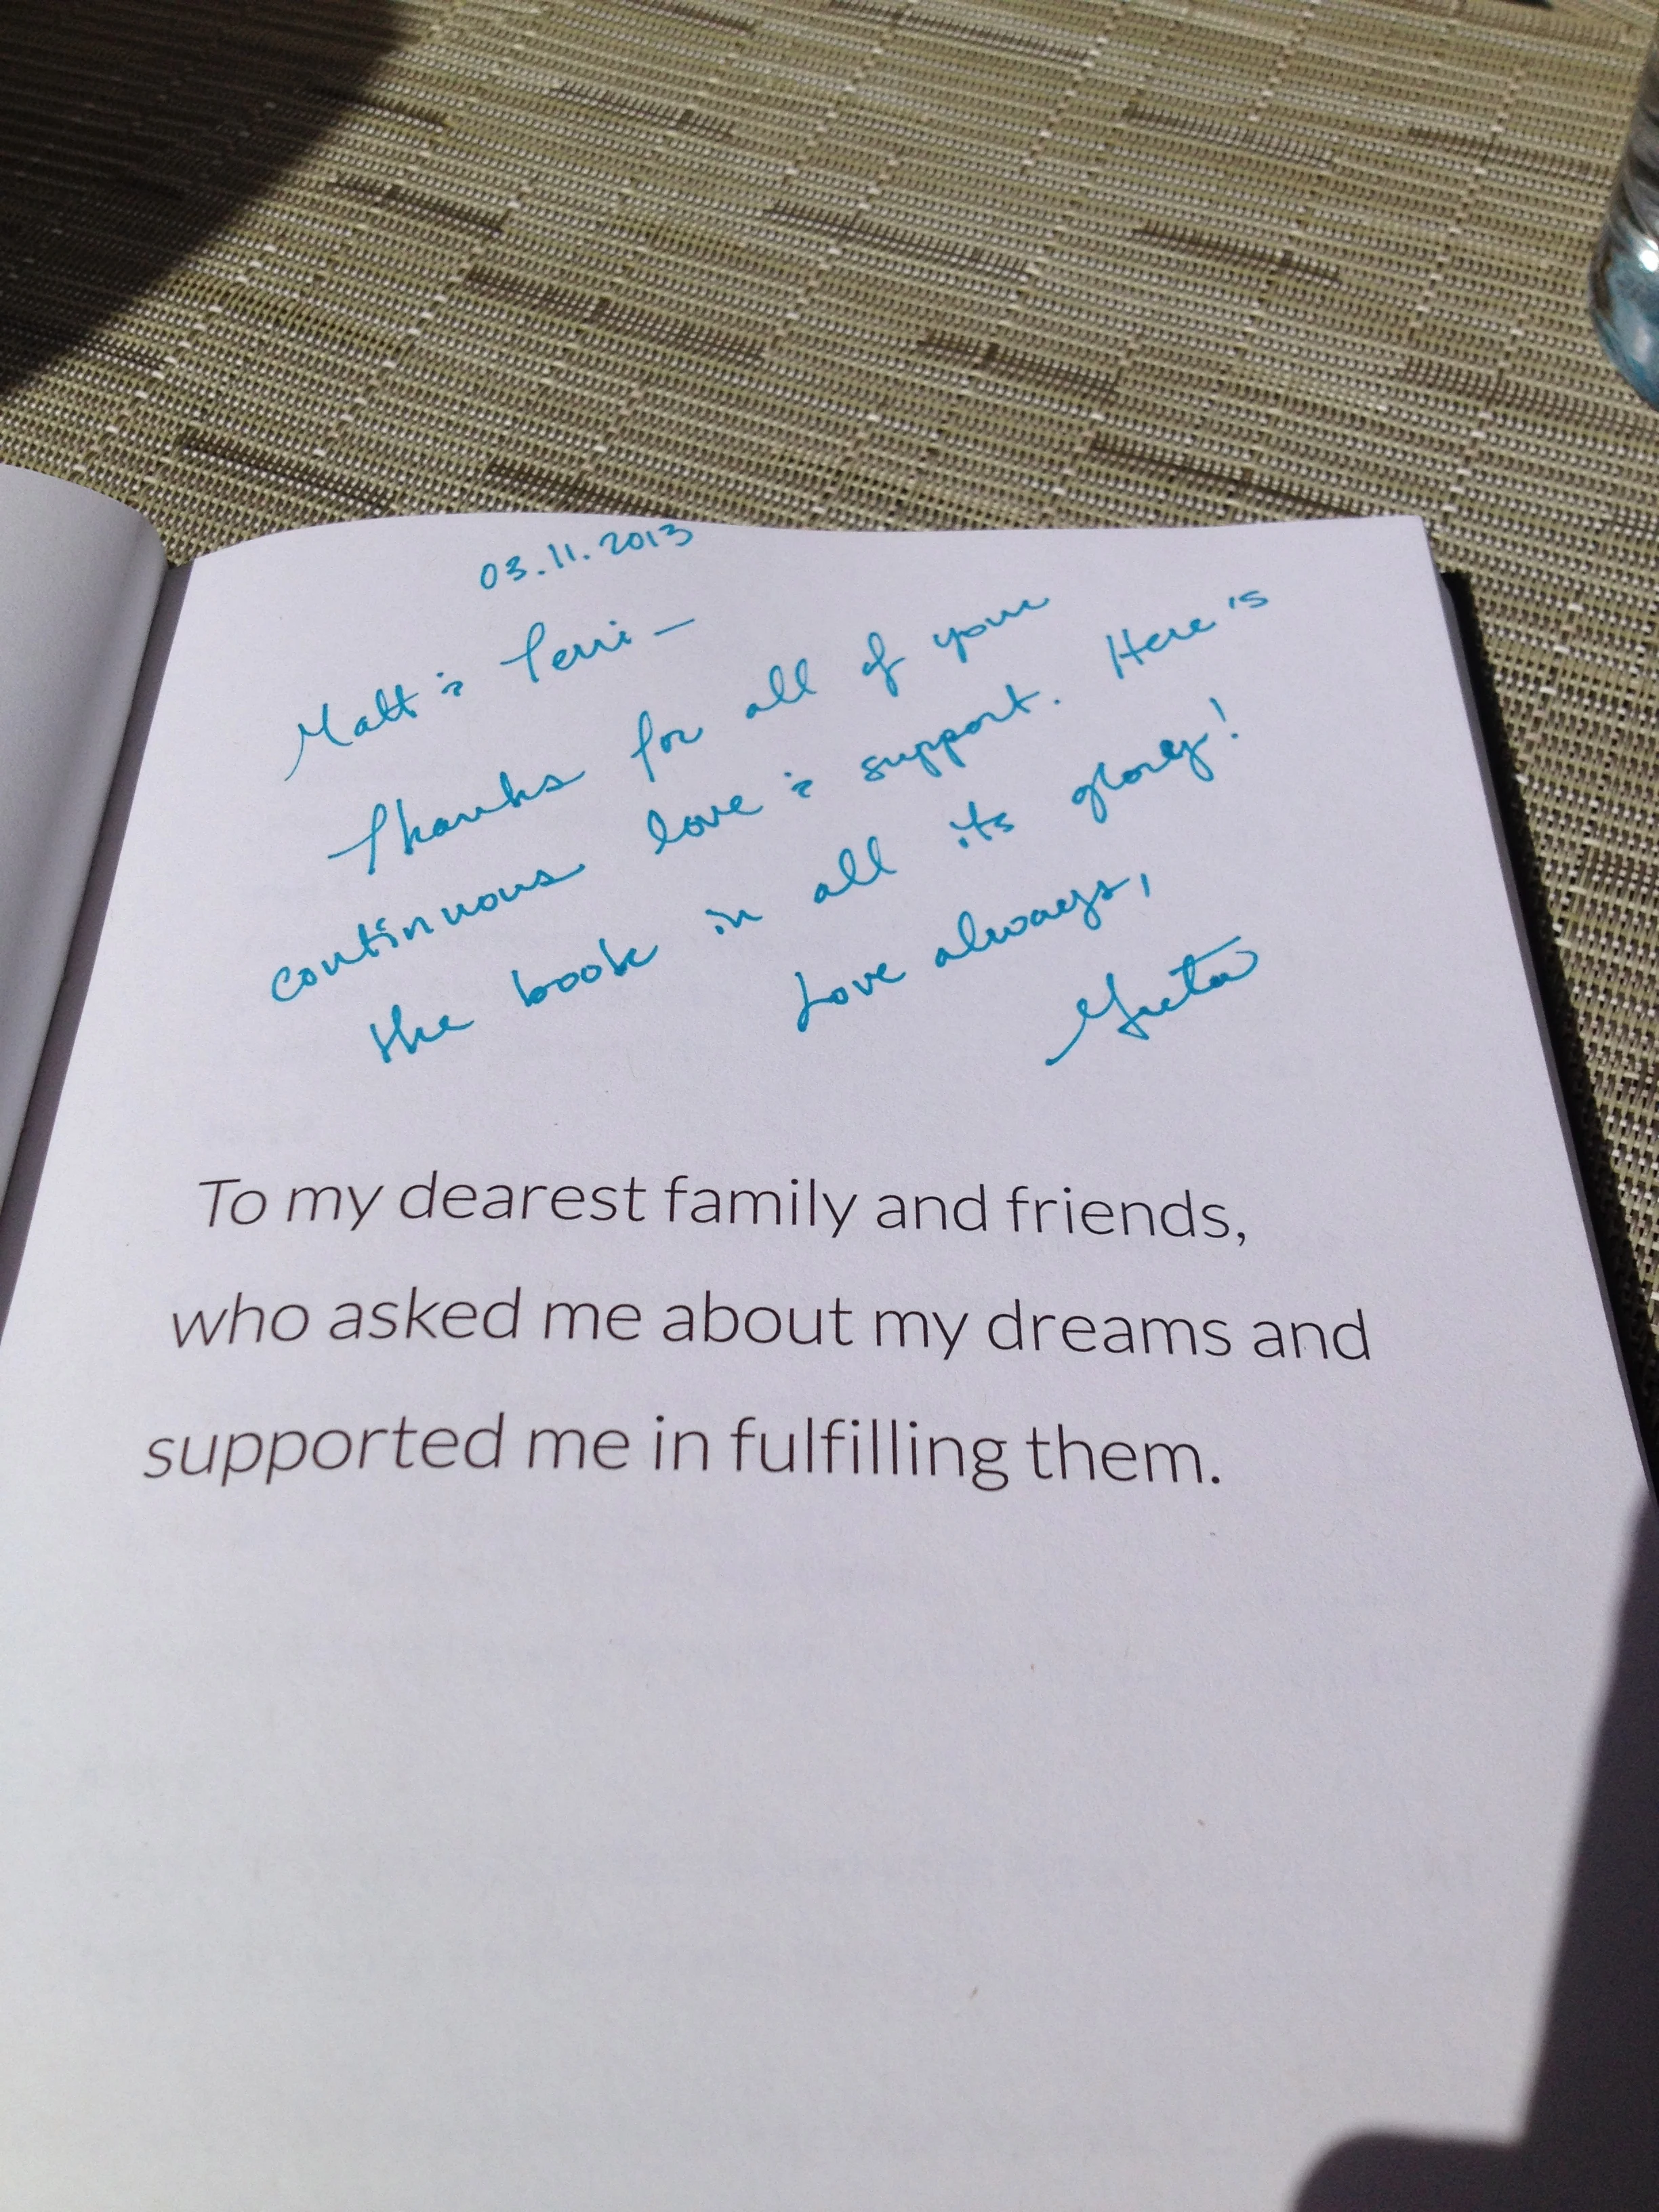 03.11.2013
Matt & Terri –
Thanks for all of your
continuous love & support. Here's
the book in all its glory!
Love always,
Greta
To my dearest family and friends,
who asked me about my dreams and
supported me in fulfilling them.